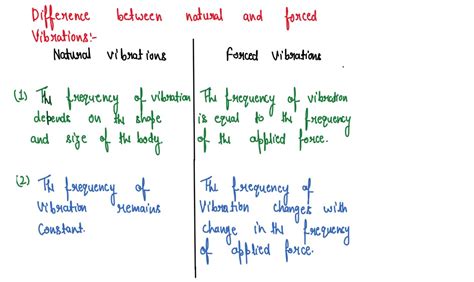 Difference between natural and forced
Vibrations:-
Natural Vibrations
Forced Vibrations
(1) The frequency of vibration
depends on the shape
and size of the body
The frequency of vibration
is equal to the frequency
of the applied force.
(2) The frequency of
Vibration remains
Constant.
The frequency of
Vibration changes with
change in the frequency
of applied force.